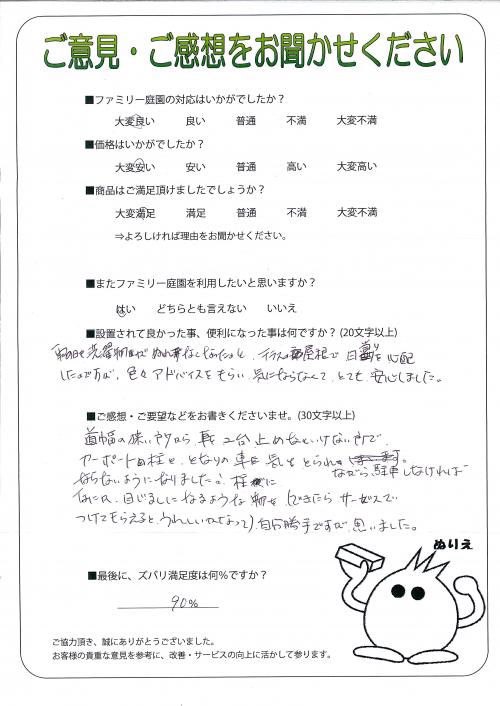 ご意見・ご感想をお聞かせください
■ファミリー庭園の対応はいかがでしたか？
大変良い 良い 普通 不満 大変不満
■価格はいかがでしたか？
大変安い 安い 普通 高い 大変高い
■商品はご満足頂けましたでしょうか？
大変満足 満足 普通 不満 大変不満
⇒よろしければ理由をお聞かせください。
■またファミリー庭園を利用したいと思いますか？
はい どちらとも言えない いいえ
■設置されて良かった事、便利になった事は何ですか？(20文字以上)
洗濯物が テラスの 屋根で 日 を心配
したのですが、色々アドバイスをもらい、気にならなくて、とても 安心しました。
■ご感想・ご要望などをお書きくださいませ。(30文字以上)
道幅の狭い所から、車 2台止めないといけない所で、
カーポートの柱と、となりの車に 気を とられ
ながら、駐車しなければ
ならないようになりました。柱に
なにか、目じるしになるような物を できたら サービスで
つけてもらえると うれしい かなって 自分勝手ですが、思いました。
ぬりえ
■最後に、ズバリ満足度は何%ですか？
90%
ご協力頂き、誠にありがとうございました。
お客様の貴重な意見を参考に、改善・サービスの向上に活かして参ります。